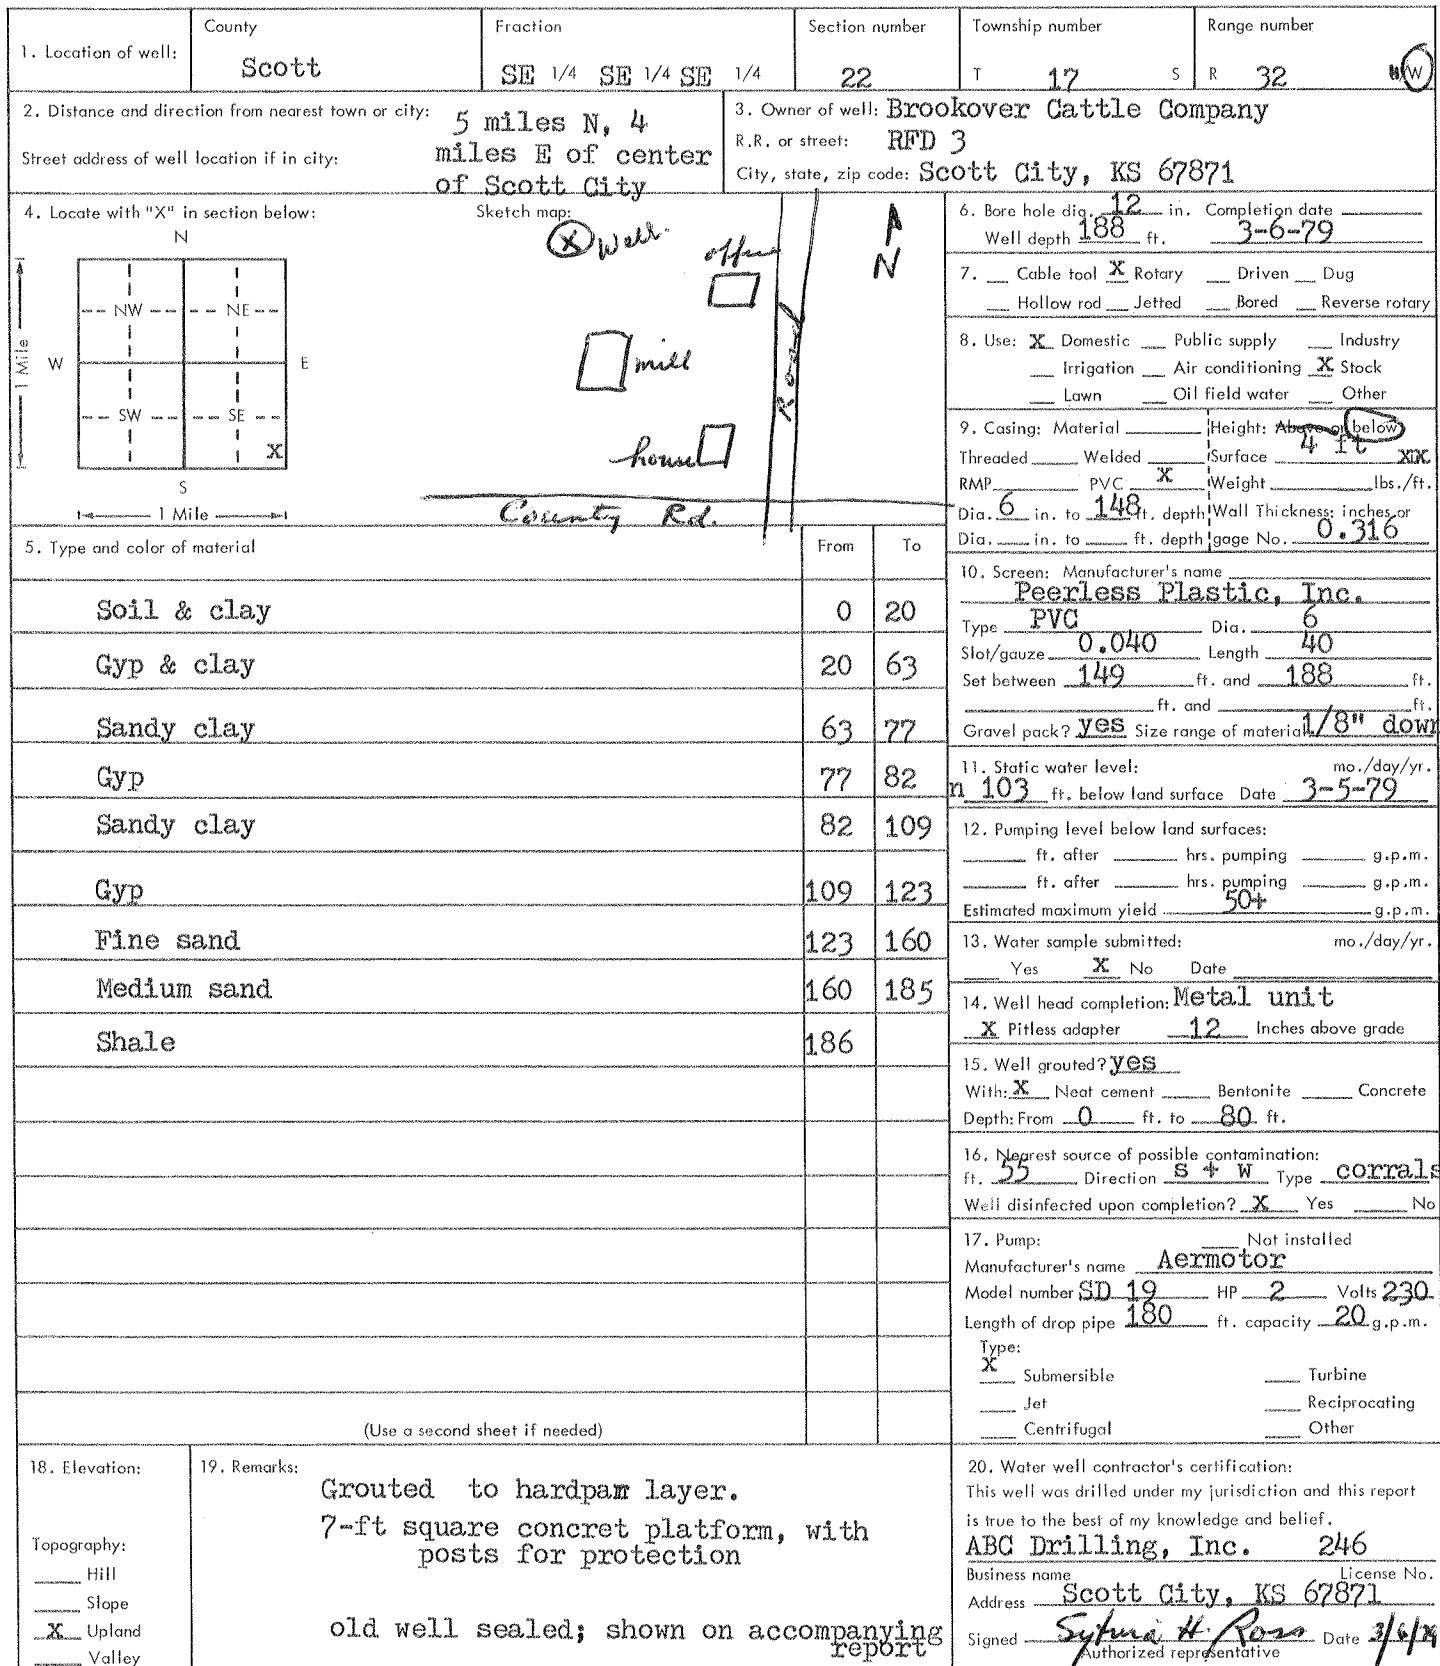 1. Location of well:
County
Scott
Fraction
SE 1/4 SE 1/4 SE 1/4
Section number
22
Township number
T 17 S
Range number
R 32 W
2. Distance and direction from nearest town or city:
5 miles N, 4
Street address of well location if in city:
miles E of center
of Scott City
3. Owner of well: Brookover Cattle Company
R.R. or street: RFD 3
City, state, zip code: Scott City, KS 67871
4. Locate with "X" in section below:
N
NW NE
W E
1 Mile
SW SE
X
S
1 Mile
Sketch map:
X Well.
office
N
mill
Road
house
County Rd.
5. Type and color of material From To
Soil & clay 0 20
Gyp & clay 20 63
Sandy clay 63 77
Gyp 77 82
Sandy clay 82 109
Gyp 109 123
Fine sand 123 160
Medium sand 160 185
Shale 186
(Use a second sheet if needed)
6. Bore hole dia. 12 in. Completion date
Well depth 188 ft. 3-6-79
7. Cable tool X Rotary Driven Dug
Hollow rod Jetted Bored Reverse rotary
8. Use: X Domestic Public supply Industry
Irrigation Air conditioning X Stock
Lawn Oil field water Other
9. Casing: Material Height: Above or below
Threaded Welded Surface 4 ft
RMP PVC X Weight lbs./ft.
Dia. 6 in. to 148 ft. depth Wall Thickness: inches or
Dia. in. to ft. depth gage No. 0.316
10. Screen: Manufacturer's name
Peerless Plastic, Inc.
Type PVC Dia. 6
Slot/gauze 0.040 Length 40
Set between 149 ft. and 188 ft.
ft. and ft.
Gravel pack? yes Size range of material 1/8" down
11. Static water level: mo./day/yr.
n 103 ft. below land surface Date 3-5-79
12. Pumping level below land surfaces:
ft. after hrs. pumping g.p.m.
ft. after hrs. pumping g.p.m.
Estimated maximum yield 50+ g.p.m.
13. Water sample submitted: mo./day/yr.
Yes X No Date
14. Well head completion: Metal unit
X Pitless adapter 12 Inches above grade
15. Well grouted? yes
With: X Neat cement Bentonite Concrete
Depth: From 0 ft. to 80 ft.
16. Nearest source of possible contamination:
ft. 55 Direction S + W Type corrals
Well disinfected upon completion? X Yes No
17. Pump: Not installed
Manufacturer's name Aermotor
Model number SD 19 HP 2 Volts 230
Length of drop pipe 180 ft. capacity 20 g.p.m.
Type:
X Submersible Turbine
Jet Reciprocating
Centrifugal Other
18. Elevation:
Topography:
Hill
Slope
X Upland
Valley
19. Remarks:
Grouted to hardpan layer.
7-ft square concret platform, with
posts for protection
old well sealed; shown on accompanying
report
20. Water well contractor's certification:
This well was drilled under my jurisdiction and this report
is true to the best of my knowledge and belief.
ABC Drilling, Inc. 246
Business name License No.
Address Scott City, KS 67871
Signed Sylvia H. Ross Date 3/6/79
Authorized representative